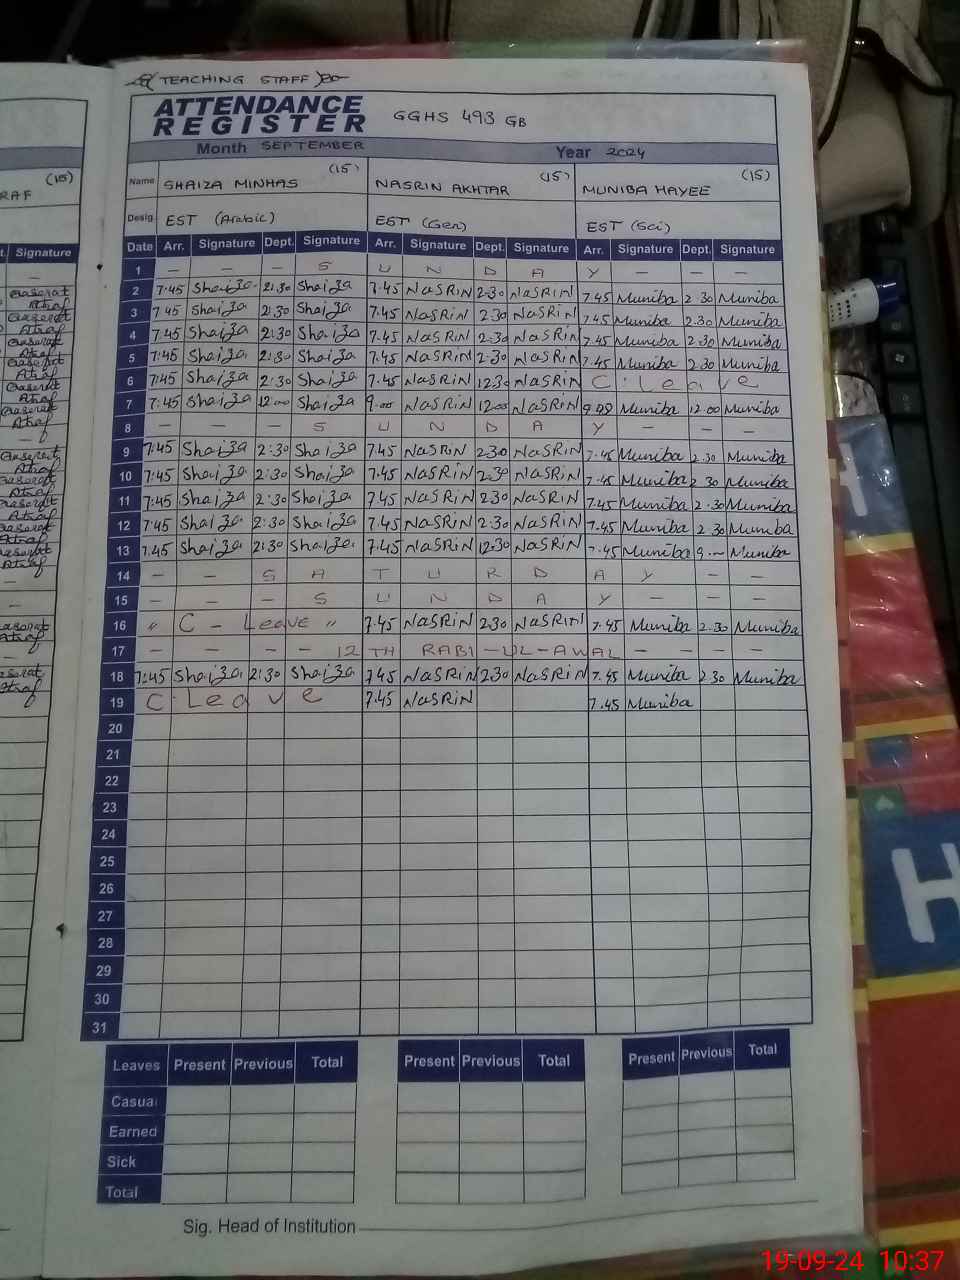 (TEACHING STAFF)
ATTENDANCE REGISTER GGHS 493 GB
Month SEPTEMBER Year 2024
RAF (15) Name SHAIZA MINHAS (15) NASRIN AKHTAR (15) MUNIBA HAYEE (15)
Desig. EST (Arabic) EST (Gen) EST (Sci)
t. Signature Date Arr. Signature Dept. Signature Arr. Signature Dept. Signature Arr. Signature Dept. Signature
1 — — — S U N D A Y — — —
2 7:45 Shaiza 2:30 Shaiza 7.45 NaSRiN 2.30 NaSRiN 7.45 Muniba 2.30 Muniba
3 7:45 Shaiza 2:30 Shaiza 7.45 NaSRiN 2.30 NaSRiN 7.45 Muniba 2.30 Muniba
4 7:45 Shaiza 2:30 Shaiza 7.45 NaSRiN 2.30 NaSRiN 7.45 Muniba 2.30 Muniba
5 7:45 Shaiza 2:30 Shaiza 7.45 NaSRiN 2.30 NaSRiN 7.45 Muniba 2.30 Muniba
6 7:45 Shaiza 2:30 Shaiza 7.45 NaSRiN 12.30 NaSRiN C. Leave
7 7:45 Shaiza 12:00 Shaiza 9.00 NaSRiN 12.00 NaSRiN Muniba 12.00 Muniba
8 — — — S U N D A Y — — —
9 7:45 Shaiza 2:30 Shaiza 7.45 NaSRiN 2.30 NaSRiN 7.45 Muniba 2.30 Muniba
10 7:45 Shaiza 2:30 Shaiza 7.45 NaSRiN 2.30 NaSRiN 7.45 Muniba 2.30 Muniba
11 7:45 Shaiza 2:30 Shaiza 7.45 NaSRiN 2.30 NaSRiN 7.45 Muniba 2.30 Muniba
12 7:45 Shaiza 2:30 Shaiza 7.45 NaSRiN 2.30 NaSRiN 7.45 Muniba 2.30 Muniba
13 7:45 Shaiza 2:30 Shaiza 7.45 NaSRiN 12.30 NaSRiN 7.45 Muniba Muniba
14 — — S A T U R D A Y — —
15 — — — S U N D A Y — — —
16 " C - Leave " 7.45 NaSRiN 2.30 NaSRiN 7.45 Muniba 2.30 Muniba
17 — — — — 12 TH RABI-UL-AWAL — — — —
18 7:45 Shaiza 2:30 Shaiza 7.45 NaSRiN 2.30 NaSRiN 7.45 Muniba 2.30 Muniba
19 C. Leave 7.45 NaSRiN 7.45 Muniba
20
21
22
23
24
25
26
27
28
29
30
31
Leaves Present Previous Total Present Previous Total Present Previous Total
Casual
Earned
Sick
Total
Sig. Head of Institution
H
19-09-24 10:37